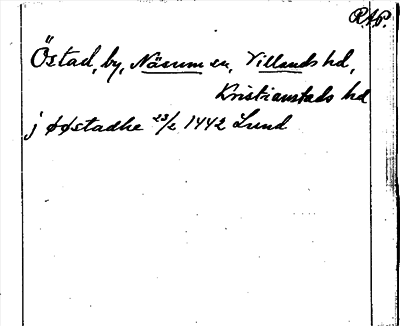 R.A.P.
Östad, by, Näsum sn, Villands hd,
Kristianstads hd
j øøstadhe 23/2 1442 Lund